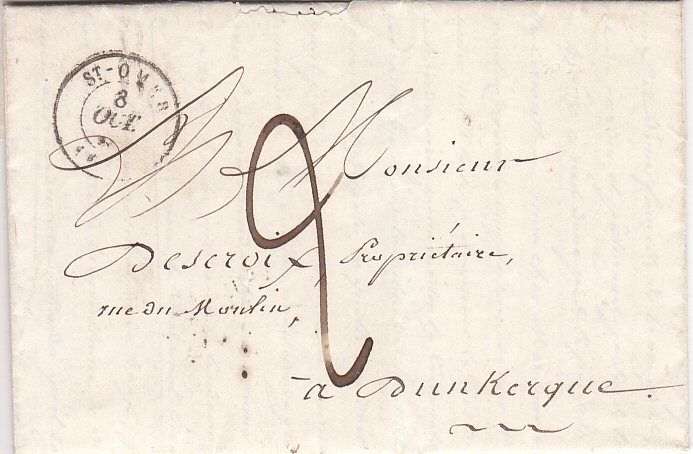 ST-OMER
8
OCT
Monsieur
Descroix, Propriétaire,
rue du Moulin,
2
à Dunkerque.